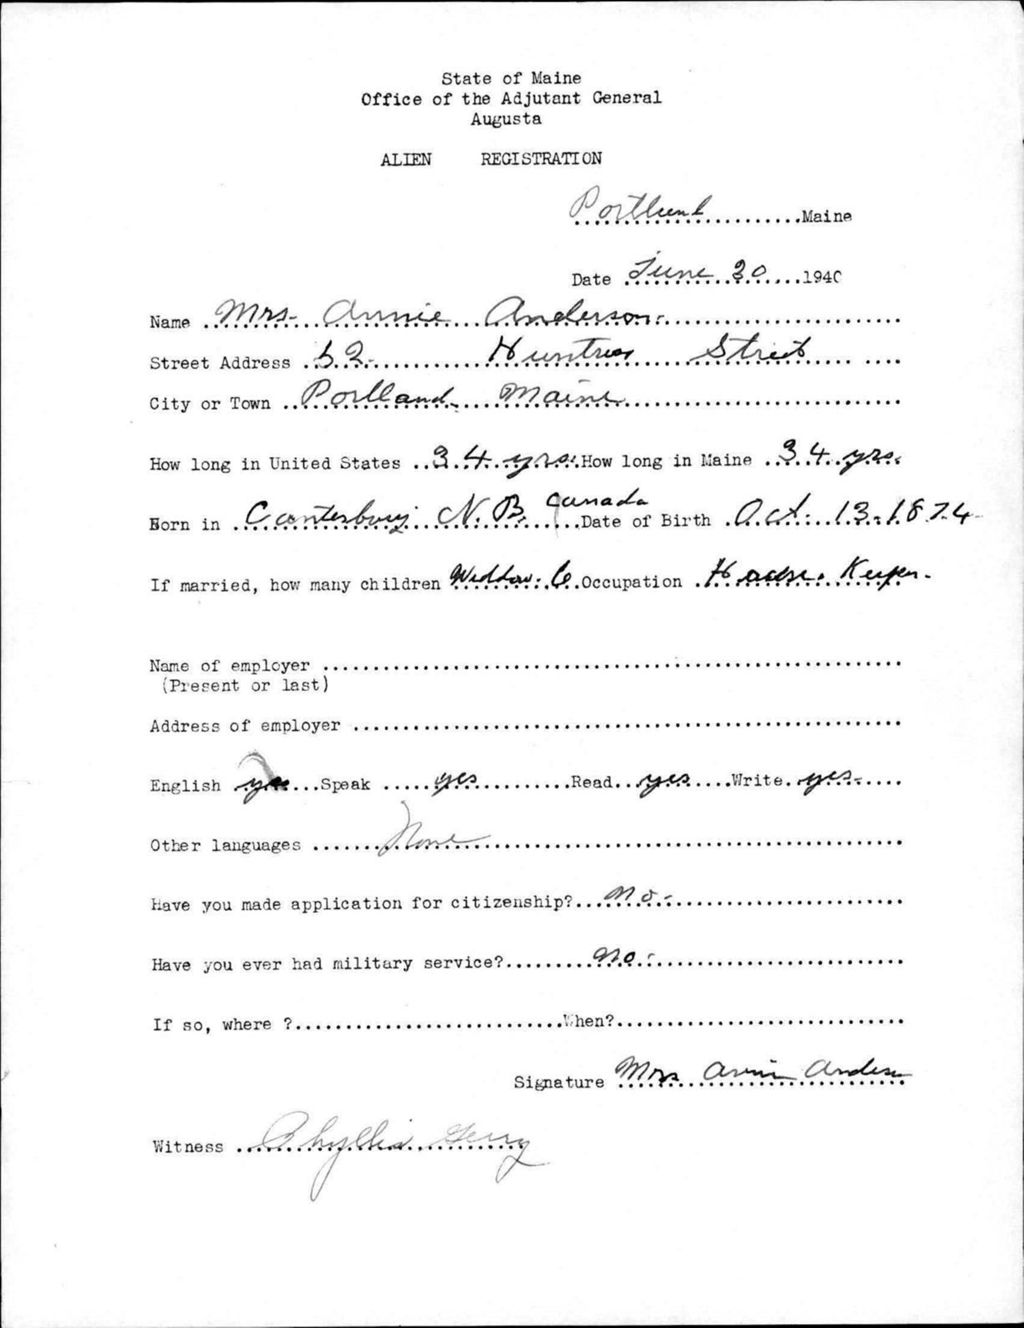 State of Maine
Office of the Adjutant General
Augusta
ALIEN REGISTRATION
Portland..........Maine
Date June 20....1940
Name Mrs. Annie Anderson
Street Address 52 Huntress Street
City or Town Portland Maine
How long in United States 34 yrs. How long in Maine 34 yrs.
Born in Canterbury N.B. Canada Date of Birth Oct. 13. 1874
If married, how many children Widdow. 6. Occupation House Keeper.
Name of employer
(Present or last)
Address of employer
English yes Speak yes Read yes Write yes
Other languages None
Have you made application for citizenship? No.
Have you ever had military service? No.
If so, where ? When?
Signature Mrs Annie Anderson
Witness Phyllis Gerry